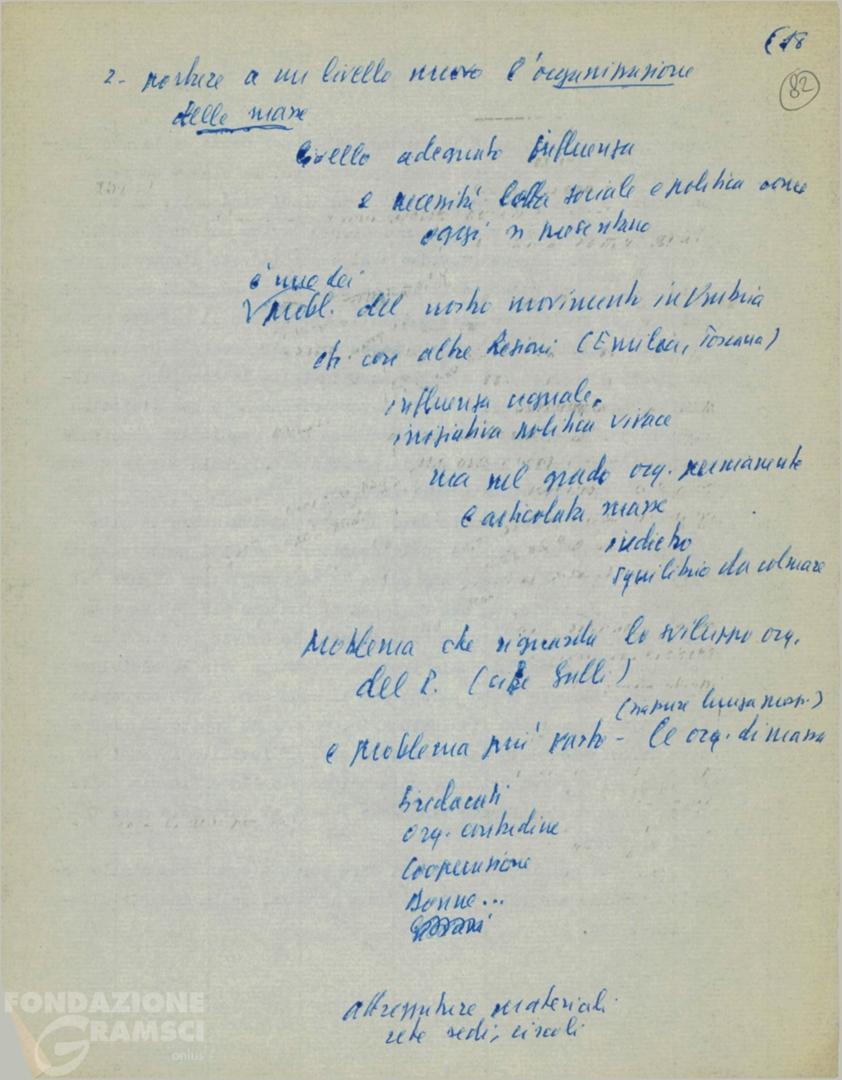 18
82
2- portare a un livello nuovo l'organizzazione
delle masse
livello adeguato influenza
e necessità lotta sociale e politica come
oggi si presentano
è uno dei
probl. del nostro movimento in Umbria
cfr. con altre Regioni (Emilia, Toscana)
influenza uguale,
iniziativa politica vivace
ma nel grado org. permanente
e articolata masse
indietro
squilibrio da colmare
Problema che riguarda lo sviluppo org.
del P. (cifre Gulli)
e problema più vasto - le org. di massa
Sindacati
org. contadine
Cooperazione
Donne...
attrezzature materiali
rete sedi, circoli
FONDAZIONE
GRAMSCI
onlus